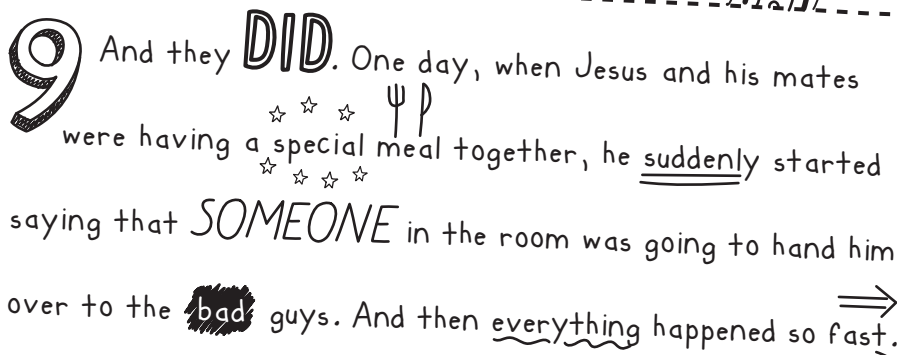 9 And they DID. One day, when Jesus and his mates
were having a special meal together, he suddenly started
saying that SOMEONE in the room was going to hand him
over to the bad guys. And then everything happened so fast.